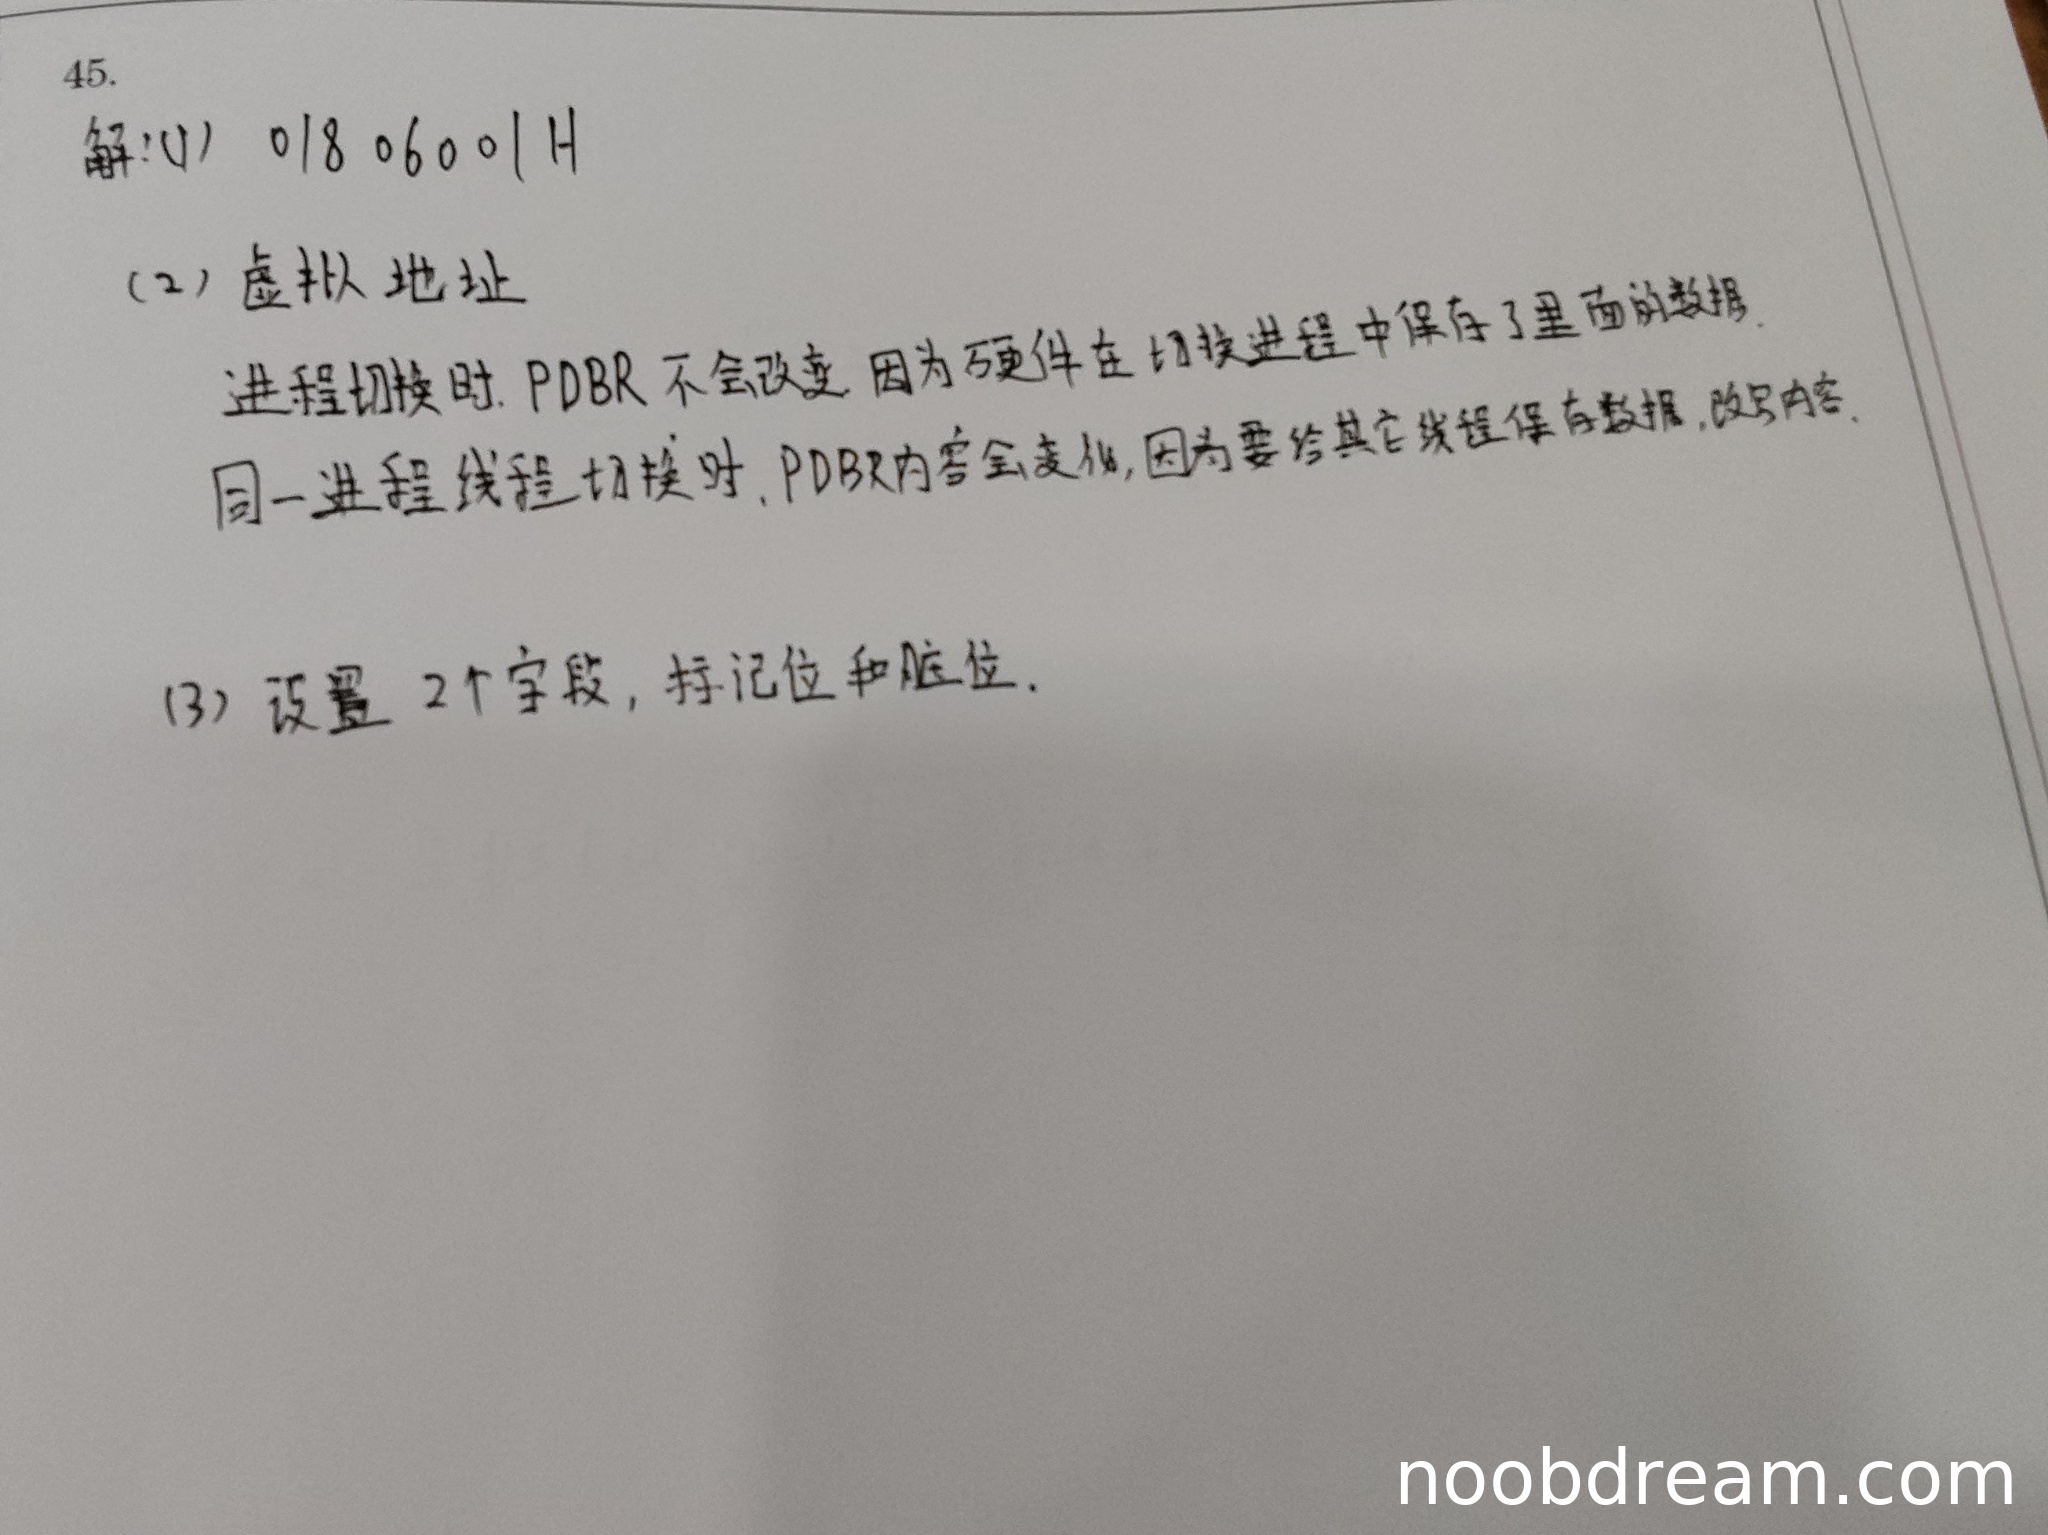 45.
解:(1) 01806001H
(2) 虚拟地址
进程切换时. PDBR不会改变 因为硬件在切换进程中保存了里面的数据.
同一进程线程切换时, PDBR内容会变化, 因为要给其它线程保存数据, 改写内容.
(3) 设置 2个字段, 标记位和脏位.
noobdream.com